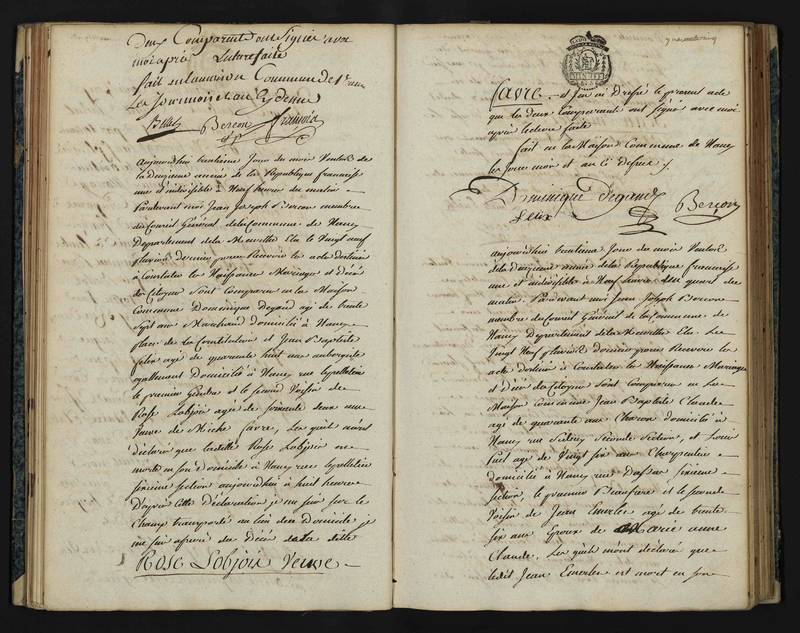 Deux Comparants ont Signés avec
moi après Lecture faite
fait en la maison Commune de
Les Jour mois et an Cy dessus
Berçon françois
aujourd'hui trentieme Jour du mois Ventose de
la deuxieme année de la Republique francaise
une et indivisible à Neuf heures du matin
Pardevant moi Jean Joseph Bercon membre
du Conseil Général de la Commune de Nancy
Departement de la Meurthe Elu le Vingt neuf
pluviose dernier pour Recevoir les acte destinés
à Constater les Naissance Mariage et décès
des Citoyens Sont Comparus en la Maison
Commune Dominique Degand agé de trente
Sept ans Marchand domicilié à Nancy
place de la Constitution et Jean Baptiste
felix agé de quarante huit ans aubergiste
egallement Domicilié à Nancy rue lepelletier
le premier Gendre et le Second Voisin de
Rose Lobjois agée de soixante deux ans
Veuve de Miche favre, Les quels m'ont
déclaré que ladite Rose Lobjois est
morte en son domicile à Nancy rue lepelletier
sixieme section aujourd'hui à huit heures
D'après cette Déclaration je me suis sur le
Champ transporté au lieu de ce Domicile je
me suis assuré du Décès de la dite
Rose Lobjois Veuve
favre. et j'en ai Dressé le present acte
que les deux Comparants ont signé avec moi
après lecture faite
fait en la Maison Commune de Nancy
les Jour mois et an Ci dessus
Dominique Degand Berçon
felix
aujourd'hui trentieme Jour du mois Ventose
de la deuxieme année de la Republique francaise
une et indivisible à Neuf heures du
matin. Pardevant moi Jean Joseph Bercon
membre du Conseil Général de la Commune de
Nancy Departement de la Meurthe Elu Le
Vingt Neuf pluviose dernier pour Recevoir les
acte destinés à Constater les Naissance Mariage
et décès des Citoyens Sont Comparus en la
Maison Commune Jean Baptiste Claude
agé de quarante ans Charon domicilié à
Nancy rue Seconde Section, et Louis
agé de Vingt six ans Charpentier
domicilié à Nancy rue Dassas sixieme
section, le premier Beaufrere et le second
Voisin de Jean Emerlé agé de trente
six ans Epoux de Marie anne
Claude. Les quels m'ont déclaré que
ledit Jean Emerlé est mort en son